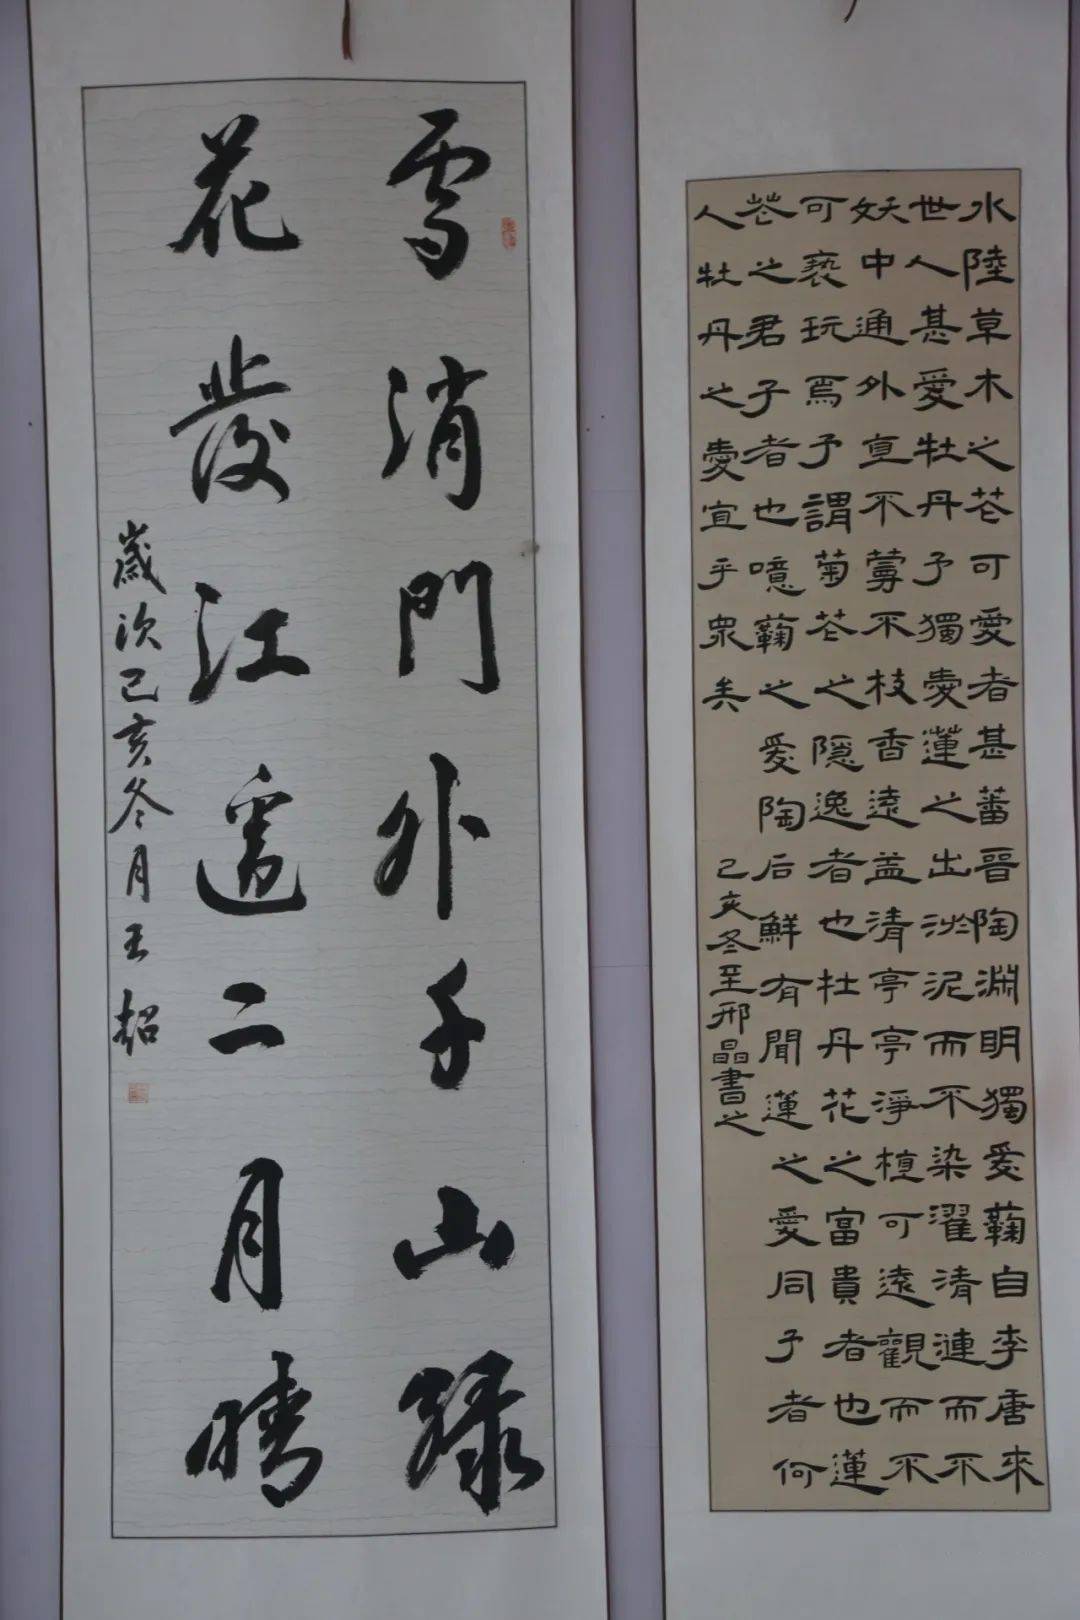 水陸草木之花可愛者甚蕃晉陶淵明獨愛蘜自李唐來
世人甚愛牡丹予獨愛蓮之出淤泥而不染濯清漣而不
妖中通外直不蔓不枝香遠益清亭亭淨植可遠觀而不
可褻玩焉予謂菊花之隱逸者也牡丹花之富貴者也蓮
花之君子者也噫蘜之愛陶后鮮有聞蓮之愛同予者何
人牡丹之愛宜乎眾矣
己亥冬至邢晶書之
雪消門外千山綠
花發江邊二月晴
歲次己亥冬月王